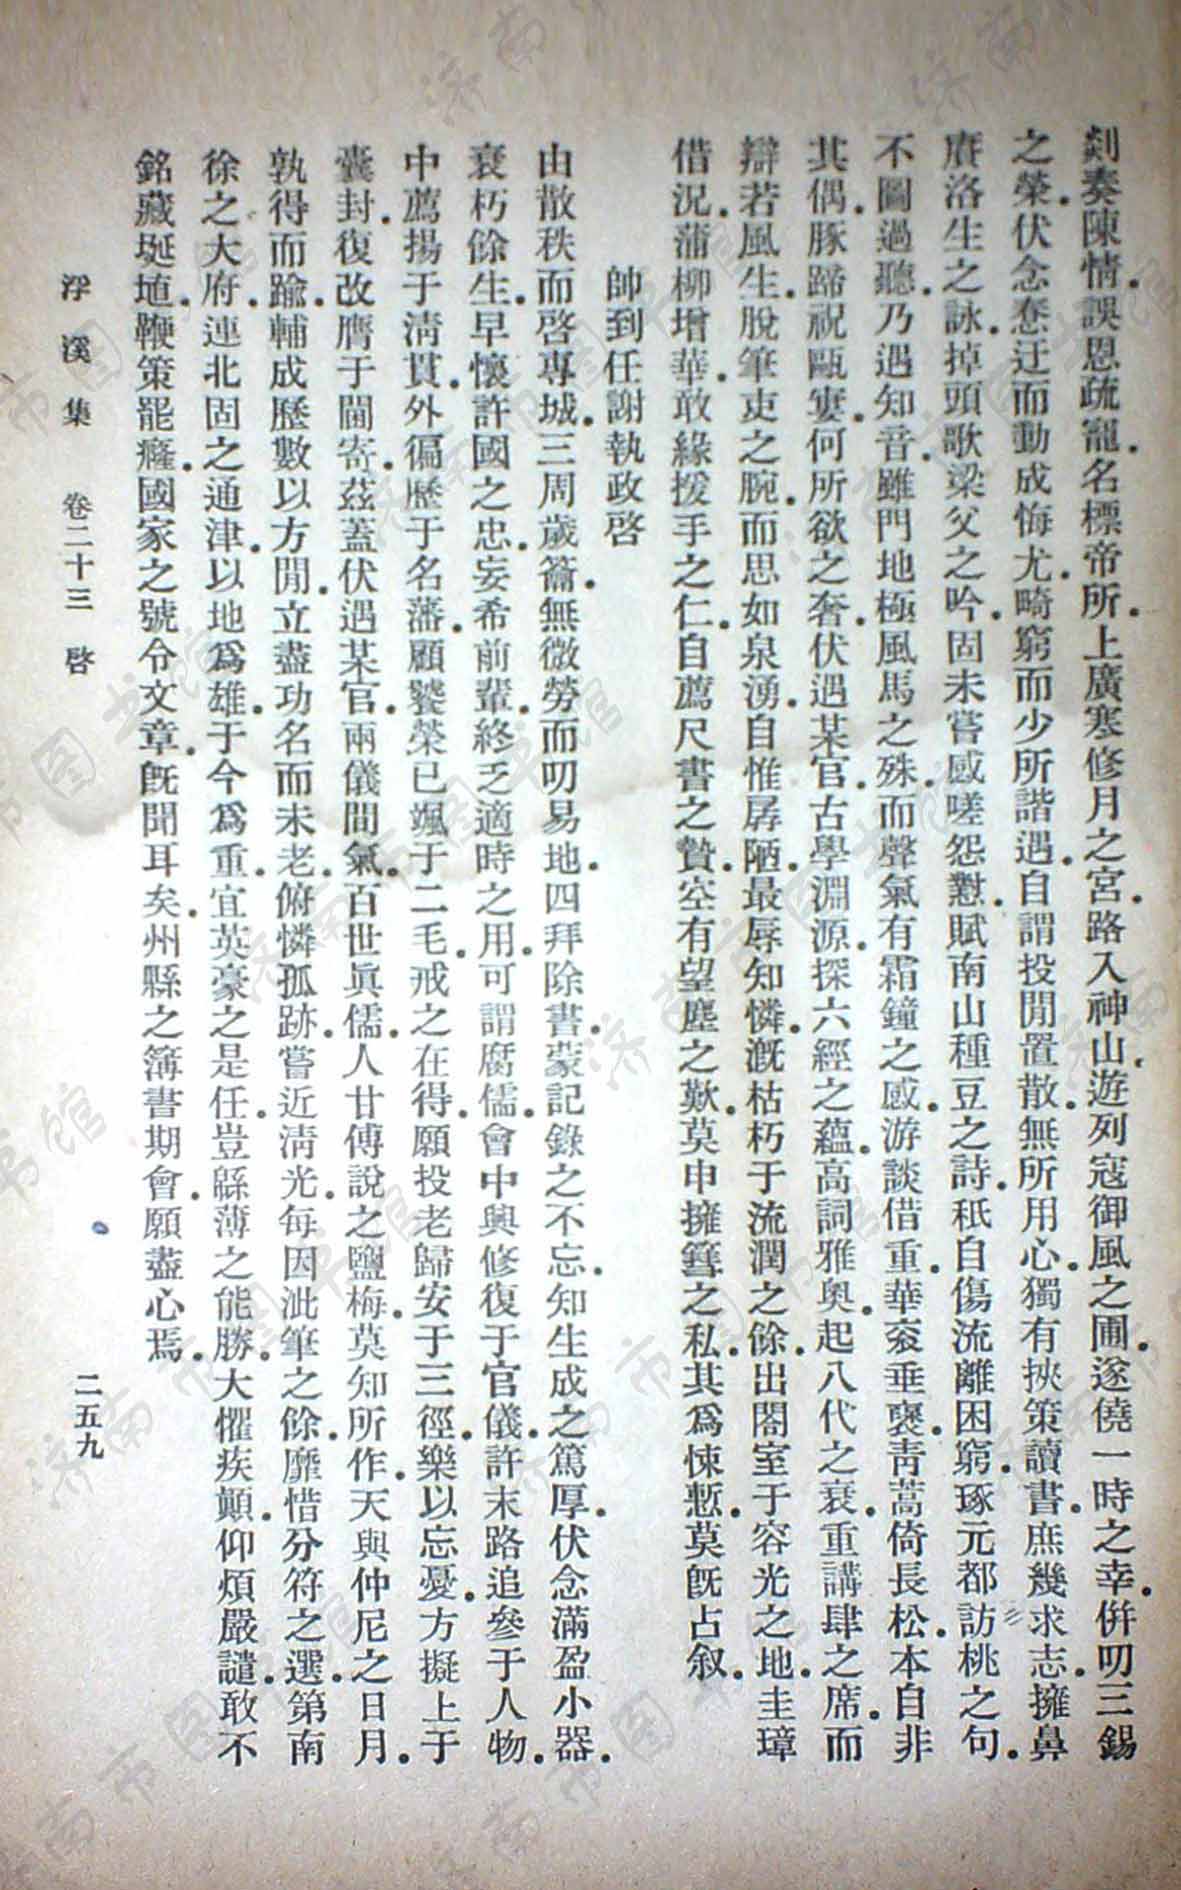 剡奏陳情誤恩疏寵名標帝所上廣寒修月之宮路入神山遊列寇御風之圃遂僥一時之幸倂叨三錫
之榮伏念惷迂而動成悔尤畸窮而少所諧遇自謂投閒置散無所用心獨有挾策讀書庶幾求志擁鼻
賡洛生之詠掉頭歌梁父之吟固未嘗感嗟怨懟賦南山種豆之詩秖自傷流離困窮琢元都訪桃之句
不圖過聽乃遇知音雖門地極風馬之殊而聲氣有霜鐘之感游談借重華衮垂褒靑蒿倚長松本自非
其偶豚蹄祝甌窶何所欲之奢伏遇某官古學淵源探六經之蘊高詞雅奧起八代之衰重講肆之席而
辯若風生脫筆吏之腕而思如泉湧自惟孱陋最辱知憐漑枯朽于流潤之餘出闇室于容光之地圭璋
借況蒲柳增華敢緣援手之仁自薦尺書之贄空有望塵之歎莫申擁篲之私其爲悚慙莫旣占叙
帥到任謝執政啓
由散秩而啓專城三周歲籥無微勞而叨易地四拜除書蒙記錄之不忘知生成之篤厚伏念滿盈小器
衰朽餘生早懷許國之忠妄希前輩終乏適時之用可謂腐儒會中興修復于官儀許末路追參于人物
中薦揚于淸貫外徧歷于名藩顧饕榮已颯于二毛戒之在得願投老歸安于三徑樂以忘憂方擬上于
囊封復改膺于閫寄茲蓋伏遇某官兩儀間氣百世眞儒人甘傅說之鹽梅莫知所作天與仲尼之日月
孰得而踰輔成歷數以方閒立盡功名而未老俯憐孤跡嘗近淸光每因泚筆之餘靡惜分符之選第南
徐之大府連北固之通津以地爲雄于今爲重宜英豪之是任豈緜薄之能勝大懼疾顚仰煩嚴譴敢不
銘藏埏埴鞭策罷癃國家之號令文章旣聞耳矣州縣之簿書期會願盡心焉
浮溪集 卷二十三 啓 二五九
济南市图书馆